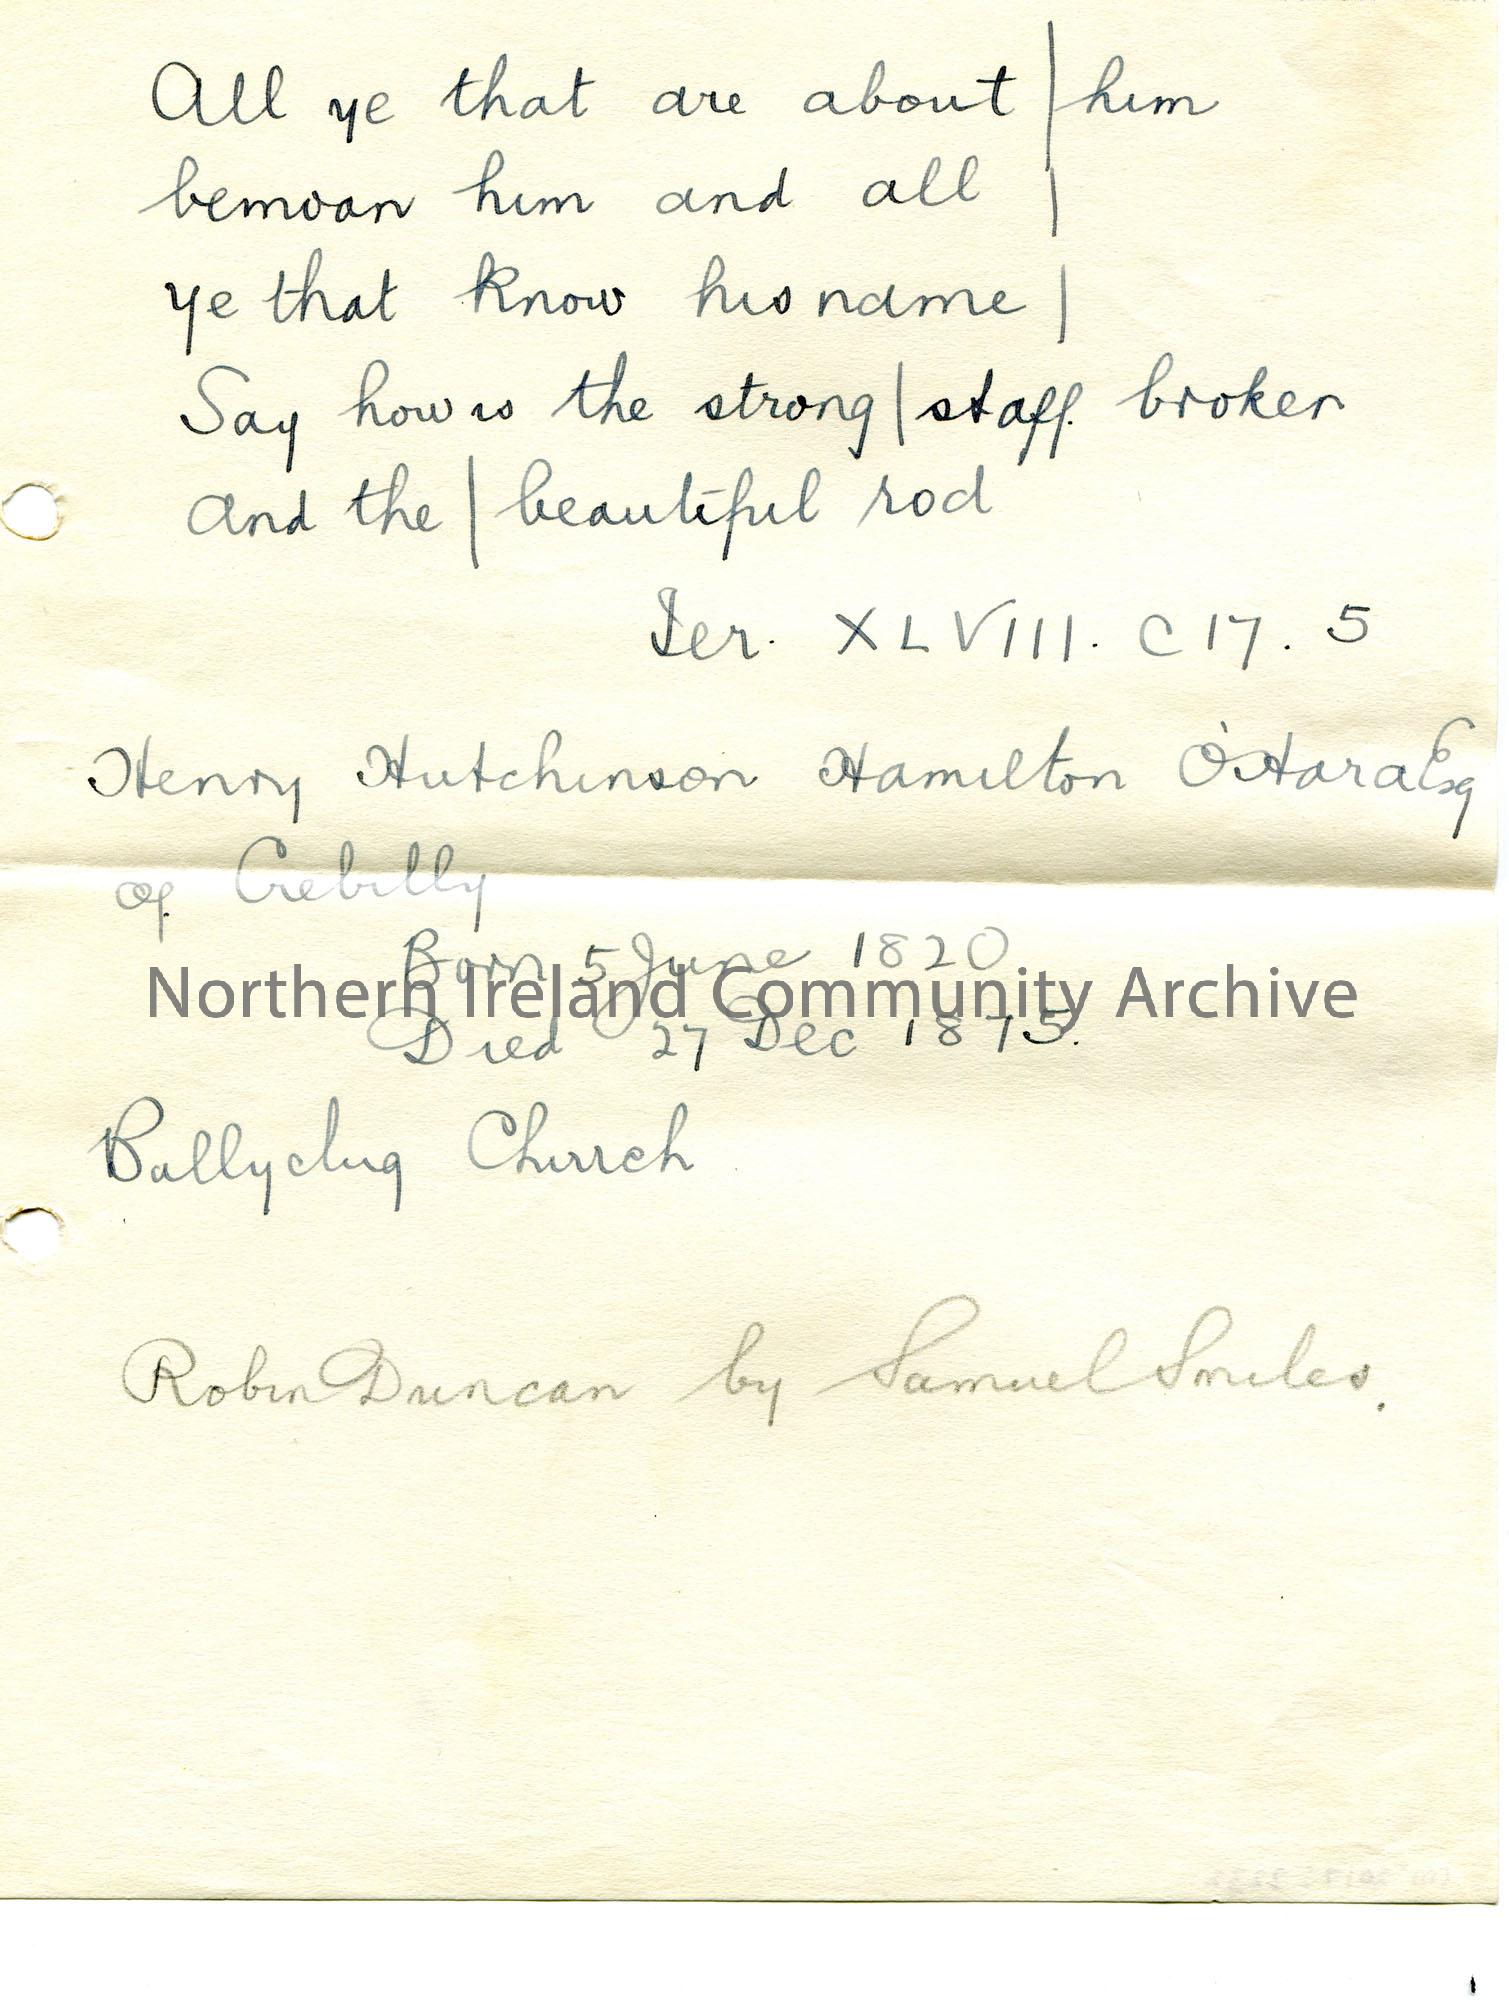 All ye that are about | him
bemoan him and all |
ye that know his name |
Say how is the strong | staff broken
And the | beautiful rod
Jer. XLVIII. C 17. 5
Henry Hutchinson Hamilton O'Hara Esq
of Crebilly
Born 5 June 1820
Northern Ireland Community Archive
Died 27 Dec 1875.
Ballyclug Church
Robin Duncan by Samuel Smiles.